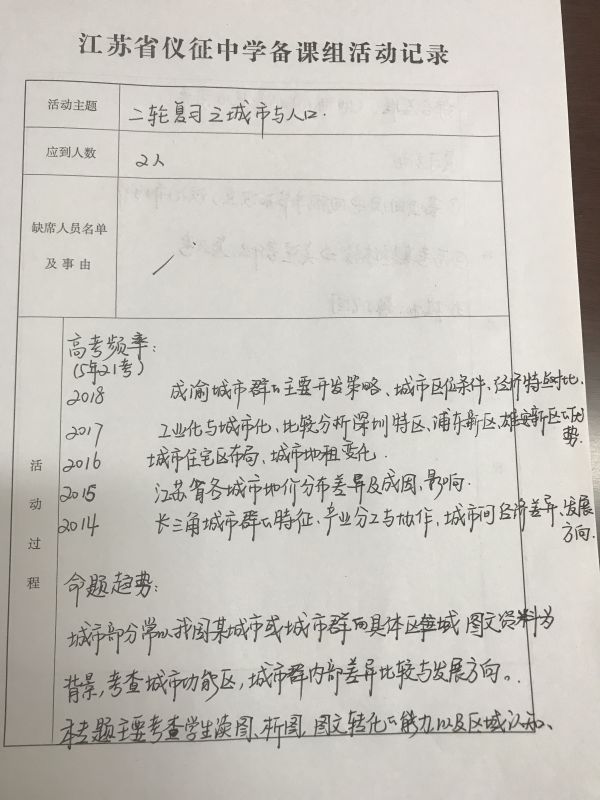 江苏省仪征中学备课组活动记录
活动主题 二轮复习之城市与人口.
应到人数 2人
缺席人员名单
及事由
活动过程
高考频率:
(5年21考)
2018 成渝城市群的主要开发策略、城市区位条件、经济特点对比.
2017 工业化与城市化、比较分析深圳特区、浦东新区、雄安新区的优
势.
2016 城市住宅区布局、城市地租变化.
2015 江苏省各城市地价分布差异及成因、影响.
2014 长三角城市群的特征、产业分工与协作、城市间经济差异、发展
方向.
命题趋势:
城市部分常以我国某城市或城市群的具体区域图文资料为
背景,考查城市功能区,城市群内部差异比较与发展方向。
本专题主要考查学生读图、析图、图文转化的能力以及区域认知、